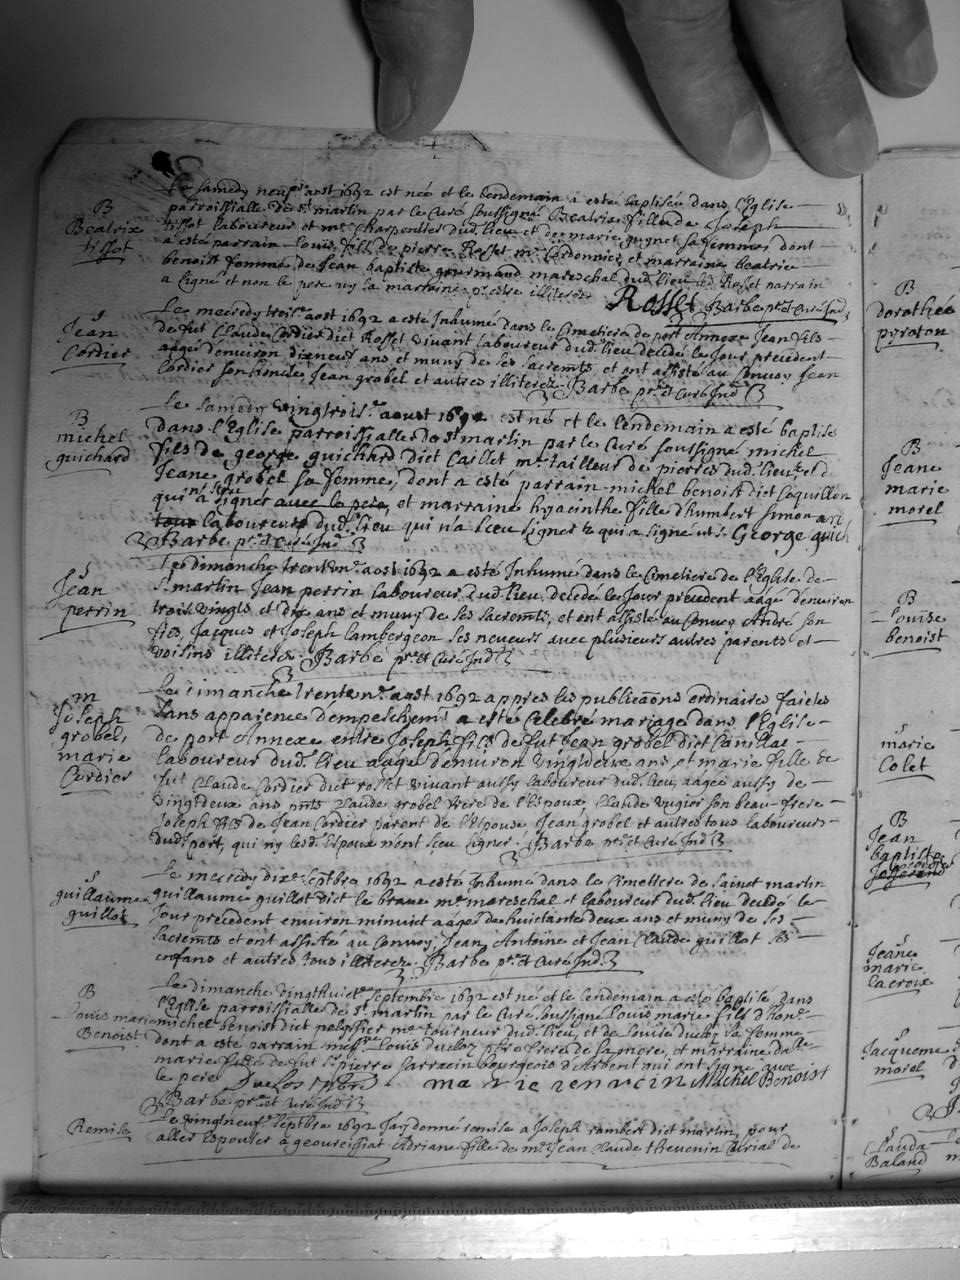 B
Beatrix
tissot
Le samedy neufe aost 1692 est née et le lendemain a esté baptisée dans l'Eglise
parroissialle de st martin par le Curé soussigné Beatrix fille de Joseph
tissot laboureur et me charpentier dud. lieu et de marie guynet sa femme, dont
a esté parrain Louis fils de pierre Rosset me Cordonnier, et marraine beatrix
benoist femme de Jean baptiste gourmand mareschal dud. lieu led. Rosset parrain
a signé et non le pere ny la marraine pr estre illiterez
Rosset Barbe ptre et Curé Ind
S
Jean
Cordier
Le mecredy troise aost 1692 a esté Inhumé dans le Cimetiere de port Annexe Jean fils
de fut Claude Cordier dict Rosset vivant laboureur dud. lieu decedé le Jour precedent
aagé denviron dixneuf ans et muny de ses sacremts, et ont assisté au Convoy Jean
Cordier son Jean grobel et autres illiterez. Barbe ptre et Curé Ind
B
michel
guichard
Le samedy vingtroise aoust 1692 est né et le lendemain a esté baptisé
dans l'Eglise parroissialle de st martin par le Curé soussigné michel
fils de george guichard dict Caillet me tailleur de pierres dud. lieu, et d
Jeane grobel sa femme, dont a esté parrain michel benoist dict Coquillon
qui a signer avec le pere, et marraine hyacinthe fille d'humbert simonard
tous laboureurs dud. lieu qui n'a sceu signer & qui a signé George guich
Barbe ptre et Curé Ind
S
Jean
perrin
Le dimanche trentune aost 1692 a esté Inhumé dans le Cimetiere de l'Eglise de
st martin Jean perrin laboureur dud. lieu decedé le Jour precedent aagé denviron
trois vingts et dix ans et muny de ses sacremts, et ont assisté au Convoy André son
fils, Jacques et Joseph lambergeon ses neveurs avec plusieurs autres parents et
voisins illiterez. Barbe ptre et Curé Ind
m
Joseph
grobel,
marie
Cordier
Le Dimanche trentune aost 1692 appres les publicaõns ordinaires faictes
sans apparence d'empeschemt a esté Celebré mariage dans l'Eglise
de port Annexe entre Joseph fils de fut Jean grobel dict Canillat
laboureur dud. lieu aagé denviron vingtdeux ans, et marie fille de
fut Claude Cordier dict rosset vivant aussy laboureur dud. lieu, aagée aussy de
vingtdeux ans pnts Claude grobel frere de l'Espoux, Claude vugier son beau-frere
Joseph fils de Jean Cordier parent de l'Espouse Jean grobel et autres tous laboureurs
dud. port, qui ny lesd. Espoux n'ont sceu signer. Barbe ptre et Curé Ind
S
guillaume
guillot
Le mecredy dixe septbre 1692 a esté Inhumé dans le Cimettere de sainct martin
guillaume guillot dict le braue me mareschal et laboureur dud. lieu decedé le
Jour precedent environ minuict aagé de huictante deux ans et muny de ses
sacremts et ont assisté au Convoy Jean, Antoine et Jean Claude guillot ses
enfans et autres tous illiterez. Barbe ptre et Curé Ind
B
Louis marie
Benoist
Le dimanche vingthuicte septembre 1692 est né et le lendemain a esté baptisé dans
l'Eglise parroissialle de st martin par le Curé soussigné Louis marie fils d'hone
michel benoist dict pelissier me tourneur dud. lieu, et de Louise ducloz sa femme
dont a esté parrain messre Louis ducloz ptre frere de sa mere, et marraine dalle
marie fille de fut sr pierre sarracin bourgeois d'Arbent qui ont signé avec
le pere Duclos marie Michel Benoist
Barbe ptre et Curé Ind
Remise
Le vingtneufe septbre 1692 Jay donné remise a Joseph rambert dict martin, pour
aller espouser a geoureissiat Adriane fille de me Jean Claude thevenin Curial de
B
dorothée
pyroton
B
Jeane
marie
morel
B
Louise
benoist
S
marie
Colet
B
Jean
baptiste
Jeane
marie
lacroix
S
Jacqueme
morel
S
Claude
Baland